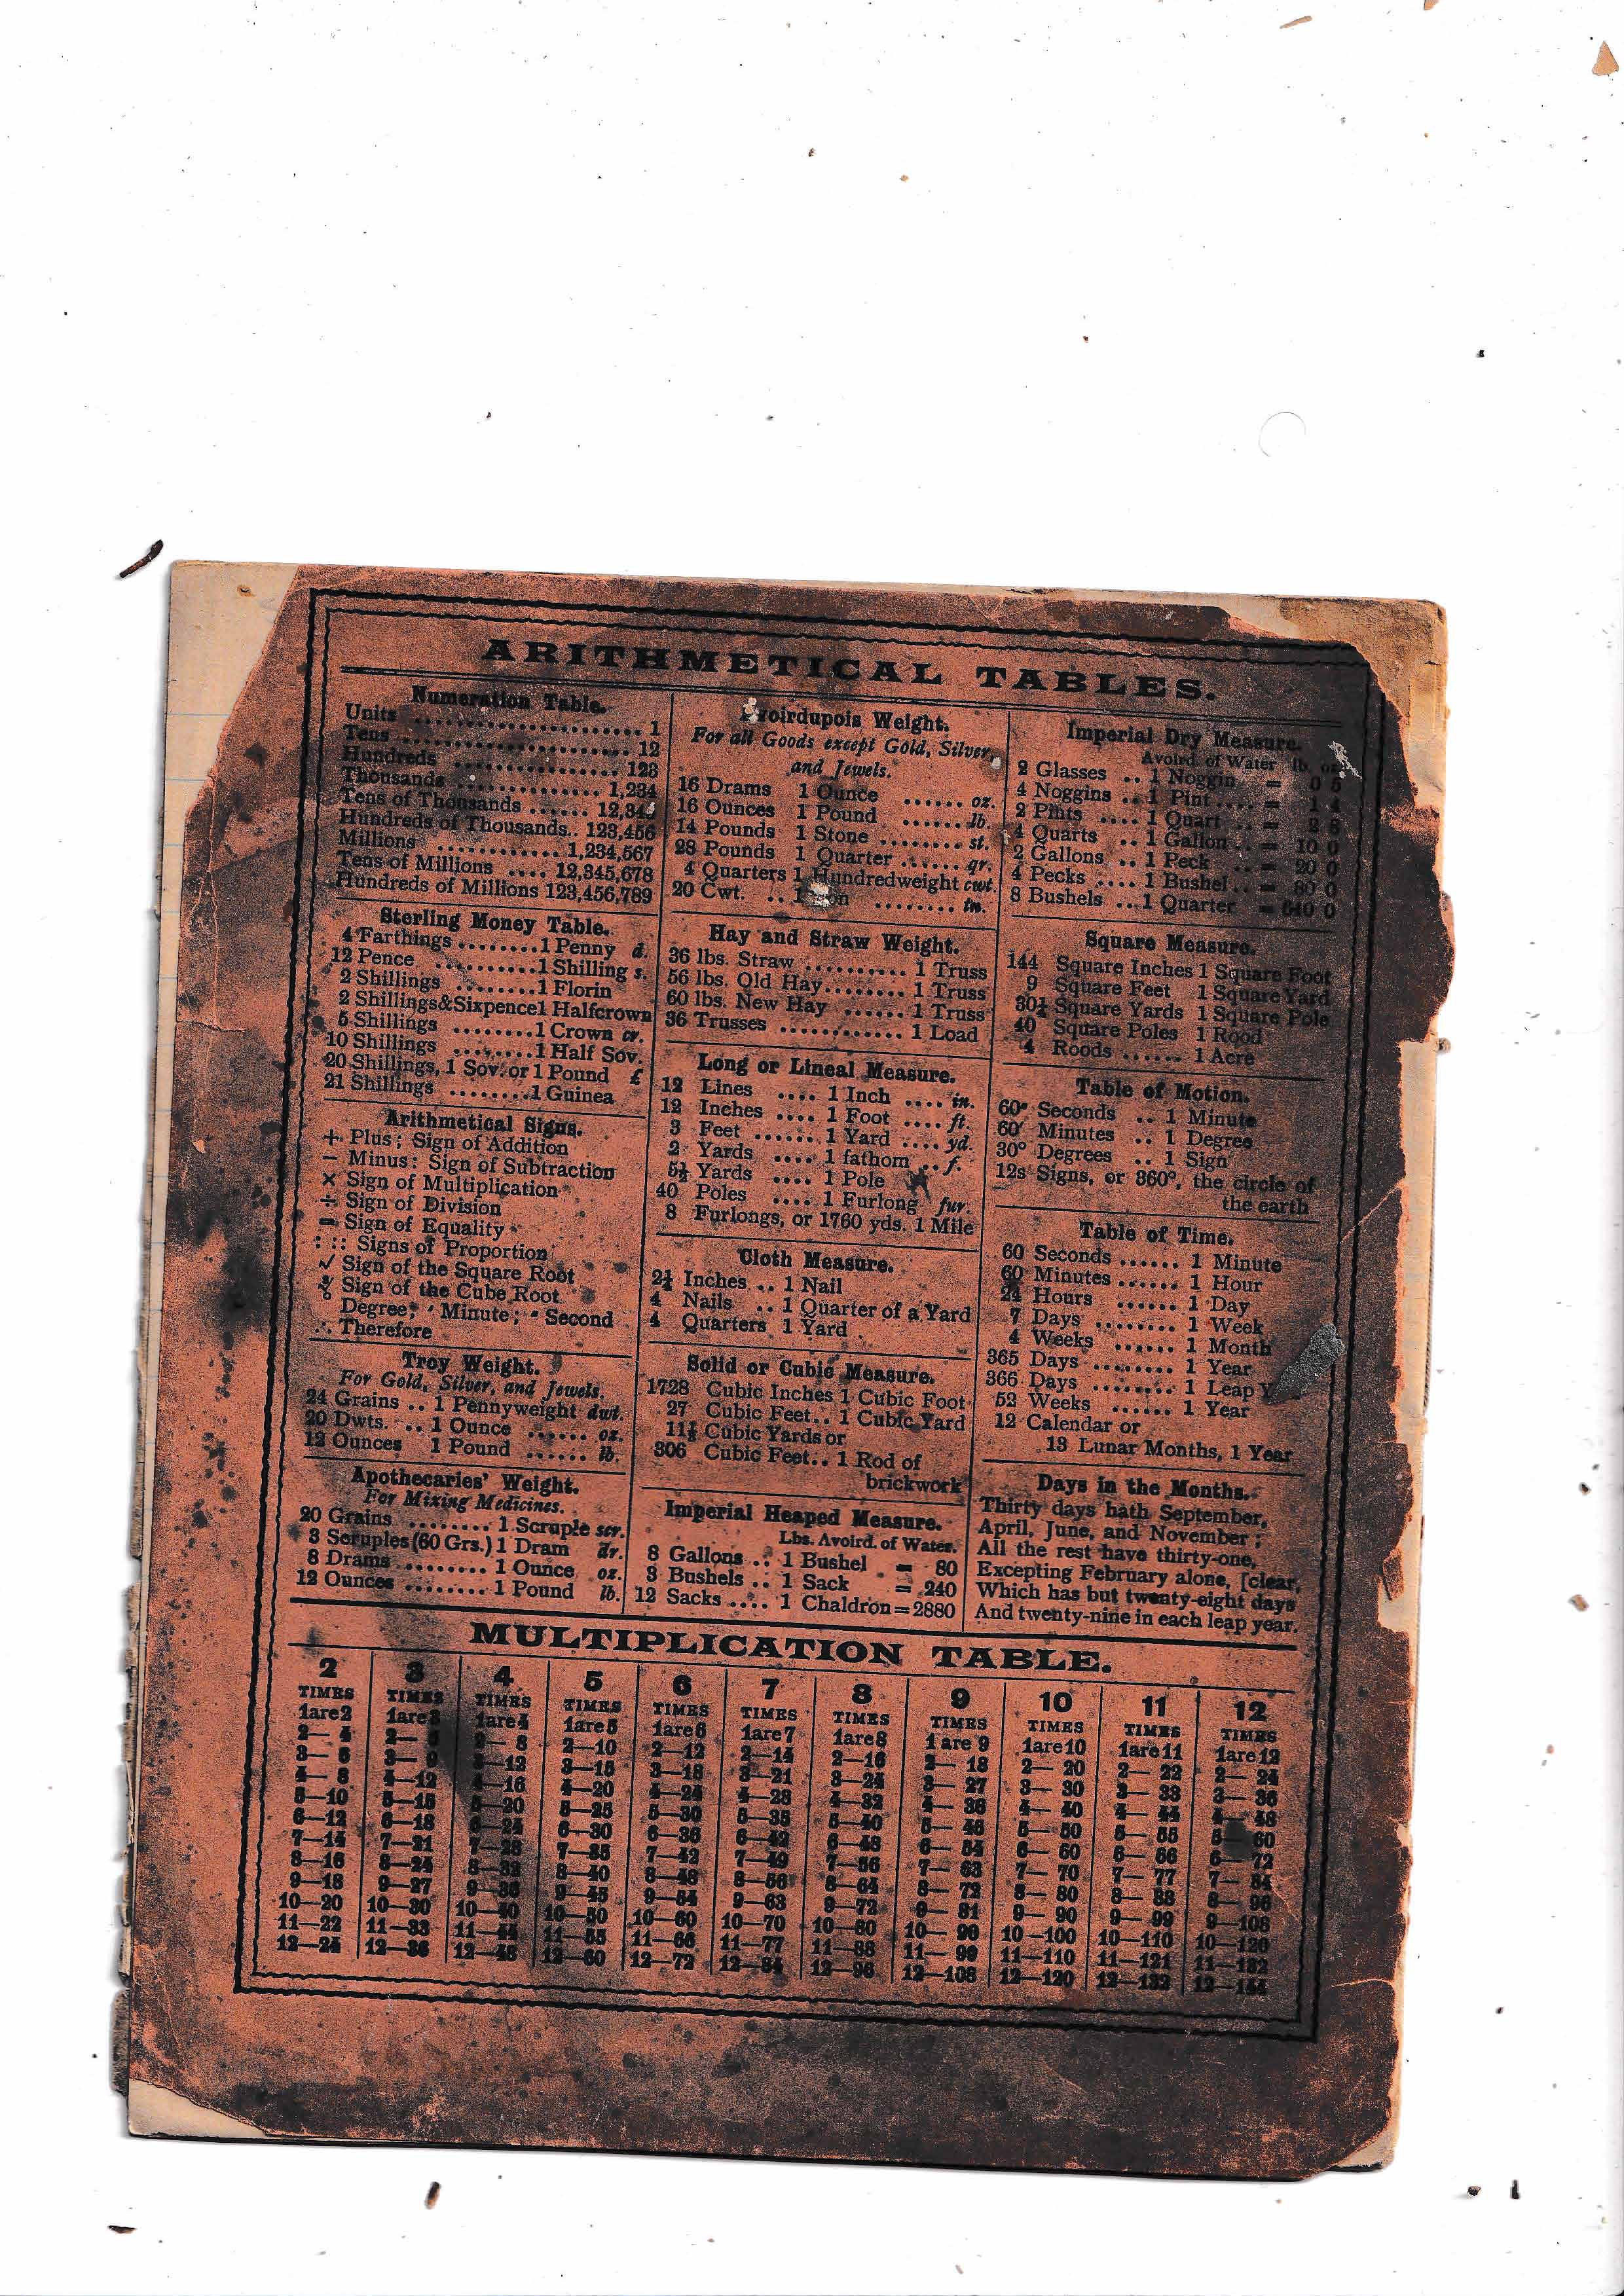 ARITHMETICAL TABLES.
Numeration Table.
Units ........................ 1
Tens ........................ 12
Hundreds ................. 123
Thousands ............... 1,234
Tens of Thousands ...... 12,345
Hundreds of Thousands.. 123,456
Millions ............. 1,234,567
Tens of Millions .... 12,345,678
Hundreds of Millions 123,456,789
Sterling Money Table.
4 Farthings ........ 1 Penny d.
12 Pence .......... 1 Shilling s.
2 Shillings ........ 1 Florin
2 Shillings&Sixpence1 Halfcrown
5 Shillings ........ 1 Crown cr.
10 Shillings ........ 1 Half Sov.
20 Shillings, 1 Sov. or 1 Pound £
21 Shillings ......... 1 Guinea
Arithmetical Signs.
+ Plus: Sign of Addition
− Minus: Sign of Subtraction
× Sign of Multiplication
÷ Sign of Division
= Sign of Equality
: :: Signs of Proportion
√ Sign of the Square Root
∛ Sign of the Cube Root
° Degree; ' Minute; " Second
∴ Therefore
Troy Weight.
For Gold, Silver, and Jewels.
24 Grains .. 1 Pennyweight dwt.
20 Dwts. .. 1 Ounce ...... oz.
12 Ounces 1 Pound ...... lb.
Apothecaries' Weight.
For Mixing Medicines.
20 Grains ........ 1 Scruple scr.
3 Scruples (60 Grs.) 1 Dram dr.
8 Drams ......... 1 Ounce oz.
12 Ounces ......... 1 Pound lb.
voirdupois Weight.
For all Goods except Gold, Silver,
and Jewels.
16 Drams 1 Ounce ...... oz.
16 Ounces 1 Pound ....... lb.
14 Pounds 1 Stone ........ st.
28 Pounds 1 Quarter ....... qr.
4 Quarters 1 Hundredweight cwt.
20 Cwt. .. 1 Ton ........ tn.
Hay and Straw Weight.
36 lbs. Straw .......... 1 Truss
56 lbs. Old Hay........ 1 Truss
60 lbs. New Hay ...... 1 Truss
36 Trusses ............ 1 Load
Long or Lineal Measure.
12 Lines .... 1 Inch .... in.
12 Inches .... 1 Foot .... ft.
3 Feet ....... 1 Yard .... yd.
2 Yards .... 1 fathom .. f.
5½ Yards .... 1 Pole
40 Poles .... 1 Furlong fur.
8 Furlongs, or 1760 yds. 1 Mile
Cloth Measure.
2¼ Inches .. 1 Nail
4 Nails .. 1 Quarter of a Yard
4 Quarters 1 Yard
Solid or Cubic Measure.
1728 Cubic Inches 1 Cubic Foot
27 Cubic Feet.. 1 Cubic Yard
11⅓ Cubic Yards or
306 Cubic Feet.. 1 Rod of
brickwork
Imperial Heaped Measure.
Lbs. Avoird. of Water.
8 Gallons .. 1 Bushel = 80
3 Bushels .. 1 Sack = 240
12 Sacks .... 1 Chaldron = 2880
Imperial Dry Measure.
Avoird. of Water lb. oz.
2 Glasses .. 1 Noggin = 0 5
4 Noggins .. 1 Pint .... = 1 4
2 Pints .... 1 Quart .. = 2 8
4 Quarts .. 1 Gallon .. = 10 0
2 Gallons .. 1 Peck .. = 20 0
4 Pecks .... 1 Bushel .. = 80 0
8 Bushels ... 1 Quarter = 640 0
Square Measure.
144 Square Inches 1 Square Foot
9 Square Feet 1 Square Yard
30¼ Square Yards 1 Square Pole
40 Square Poles 1 Rood
4 Roods ...... 1 Acre
Table of Motion.
60" Seconds .. 1 Minute
60' Minutes .. 1 Degree
30° Degrees .. 1 Sign
12s Signs, or 360°, the circle of
the earth
Table of Time.
60 Seconds ...... 1 Minute
60 Minutes ...... 1 Hour
24 Hours ...... 1 Day
7 Days ........ 1 Week
4 Weeks ...... 1 Month
365 Days ........ 1 Year
366 Days ........ 1 Leap
52 Weeks ...... 1 Year
12 Calendar or
13 Lunar Months, 1 Year
Days in the Months.
Thirty days hath September,
April, June, and November;
All the rest have thirty-one,
Excepting February alone, [clear,
Which has but twenty-eight days
And twenty-nine in each leap year.
MULTIPLICATION TABLE.
2 3 4 5 6 7 8 9 10 11 12
TIMES TIMES TIMES TIMES TIMES TIMES TIMES TIMES TIMES TIMES TIMES
1are2 1are3 1are4 1are5 1are6 1are7 1are8 1 are 9 1are10 1are11 1are12
2— 4 2— 6 2— 8 2—10 2—12 2—14 2—16 2— 18 2— 20 2— 22 2— 24
3— 6 3— 9 3—12 3—15 3—18 3—21 3—24 3— 27 3— 30 3— 33 3— 36
4— 8 4—12 4—16 4—20 4—24 4—28 4—32 4— 36 4— 40 4— 44 4— 48
5—10 5—15 5—20 5—25 5—30 5—35 5—40 5— 45 5— 50 5— 55 5— 60
6—12 6—18 6—24 6—30 6—36 6—42 6—48 6— 54 6— 60 6— 66 6— 72
7—14 7—21 7—28 7—35 7—42 7—49 7—56 7— 63 7— 70 7— 77 7— 84
8—16 8—24 8—32 8—40 8—48 8—56 8—64 8— 72 8— 80 8— 88 8— 96
9—18 9—27 9—36 9—45 9—54 9—63 9—72 9— 81 9— 90 9— 99 9—108
10—20 10—30 10—40 10—50 10—60 10—70 10—80 10— 90 10—100 10—110 10—120
11—22 11—33 11—44 11—55 11—66 11—77 11—88 11— 99 11—110 11—121 11—132
12—24 12—36 12—48 12—60 12—72 12—84 12—96 12—108 12—120 12—132 12—144